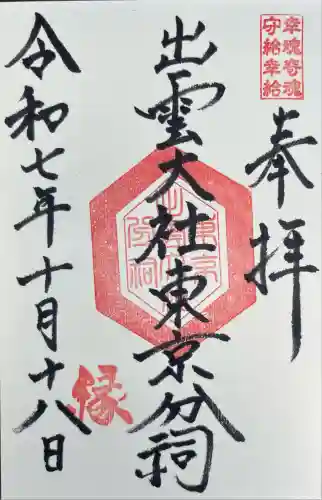 幸魂奇魂
守給幸給
奉拝
出雲大社東京分祠
令和七年十月十八日
縁